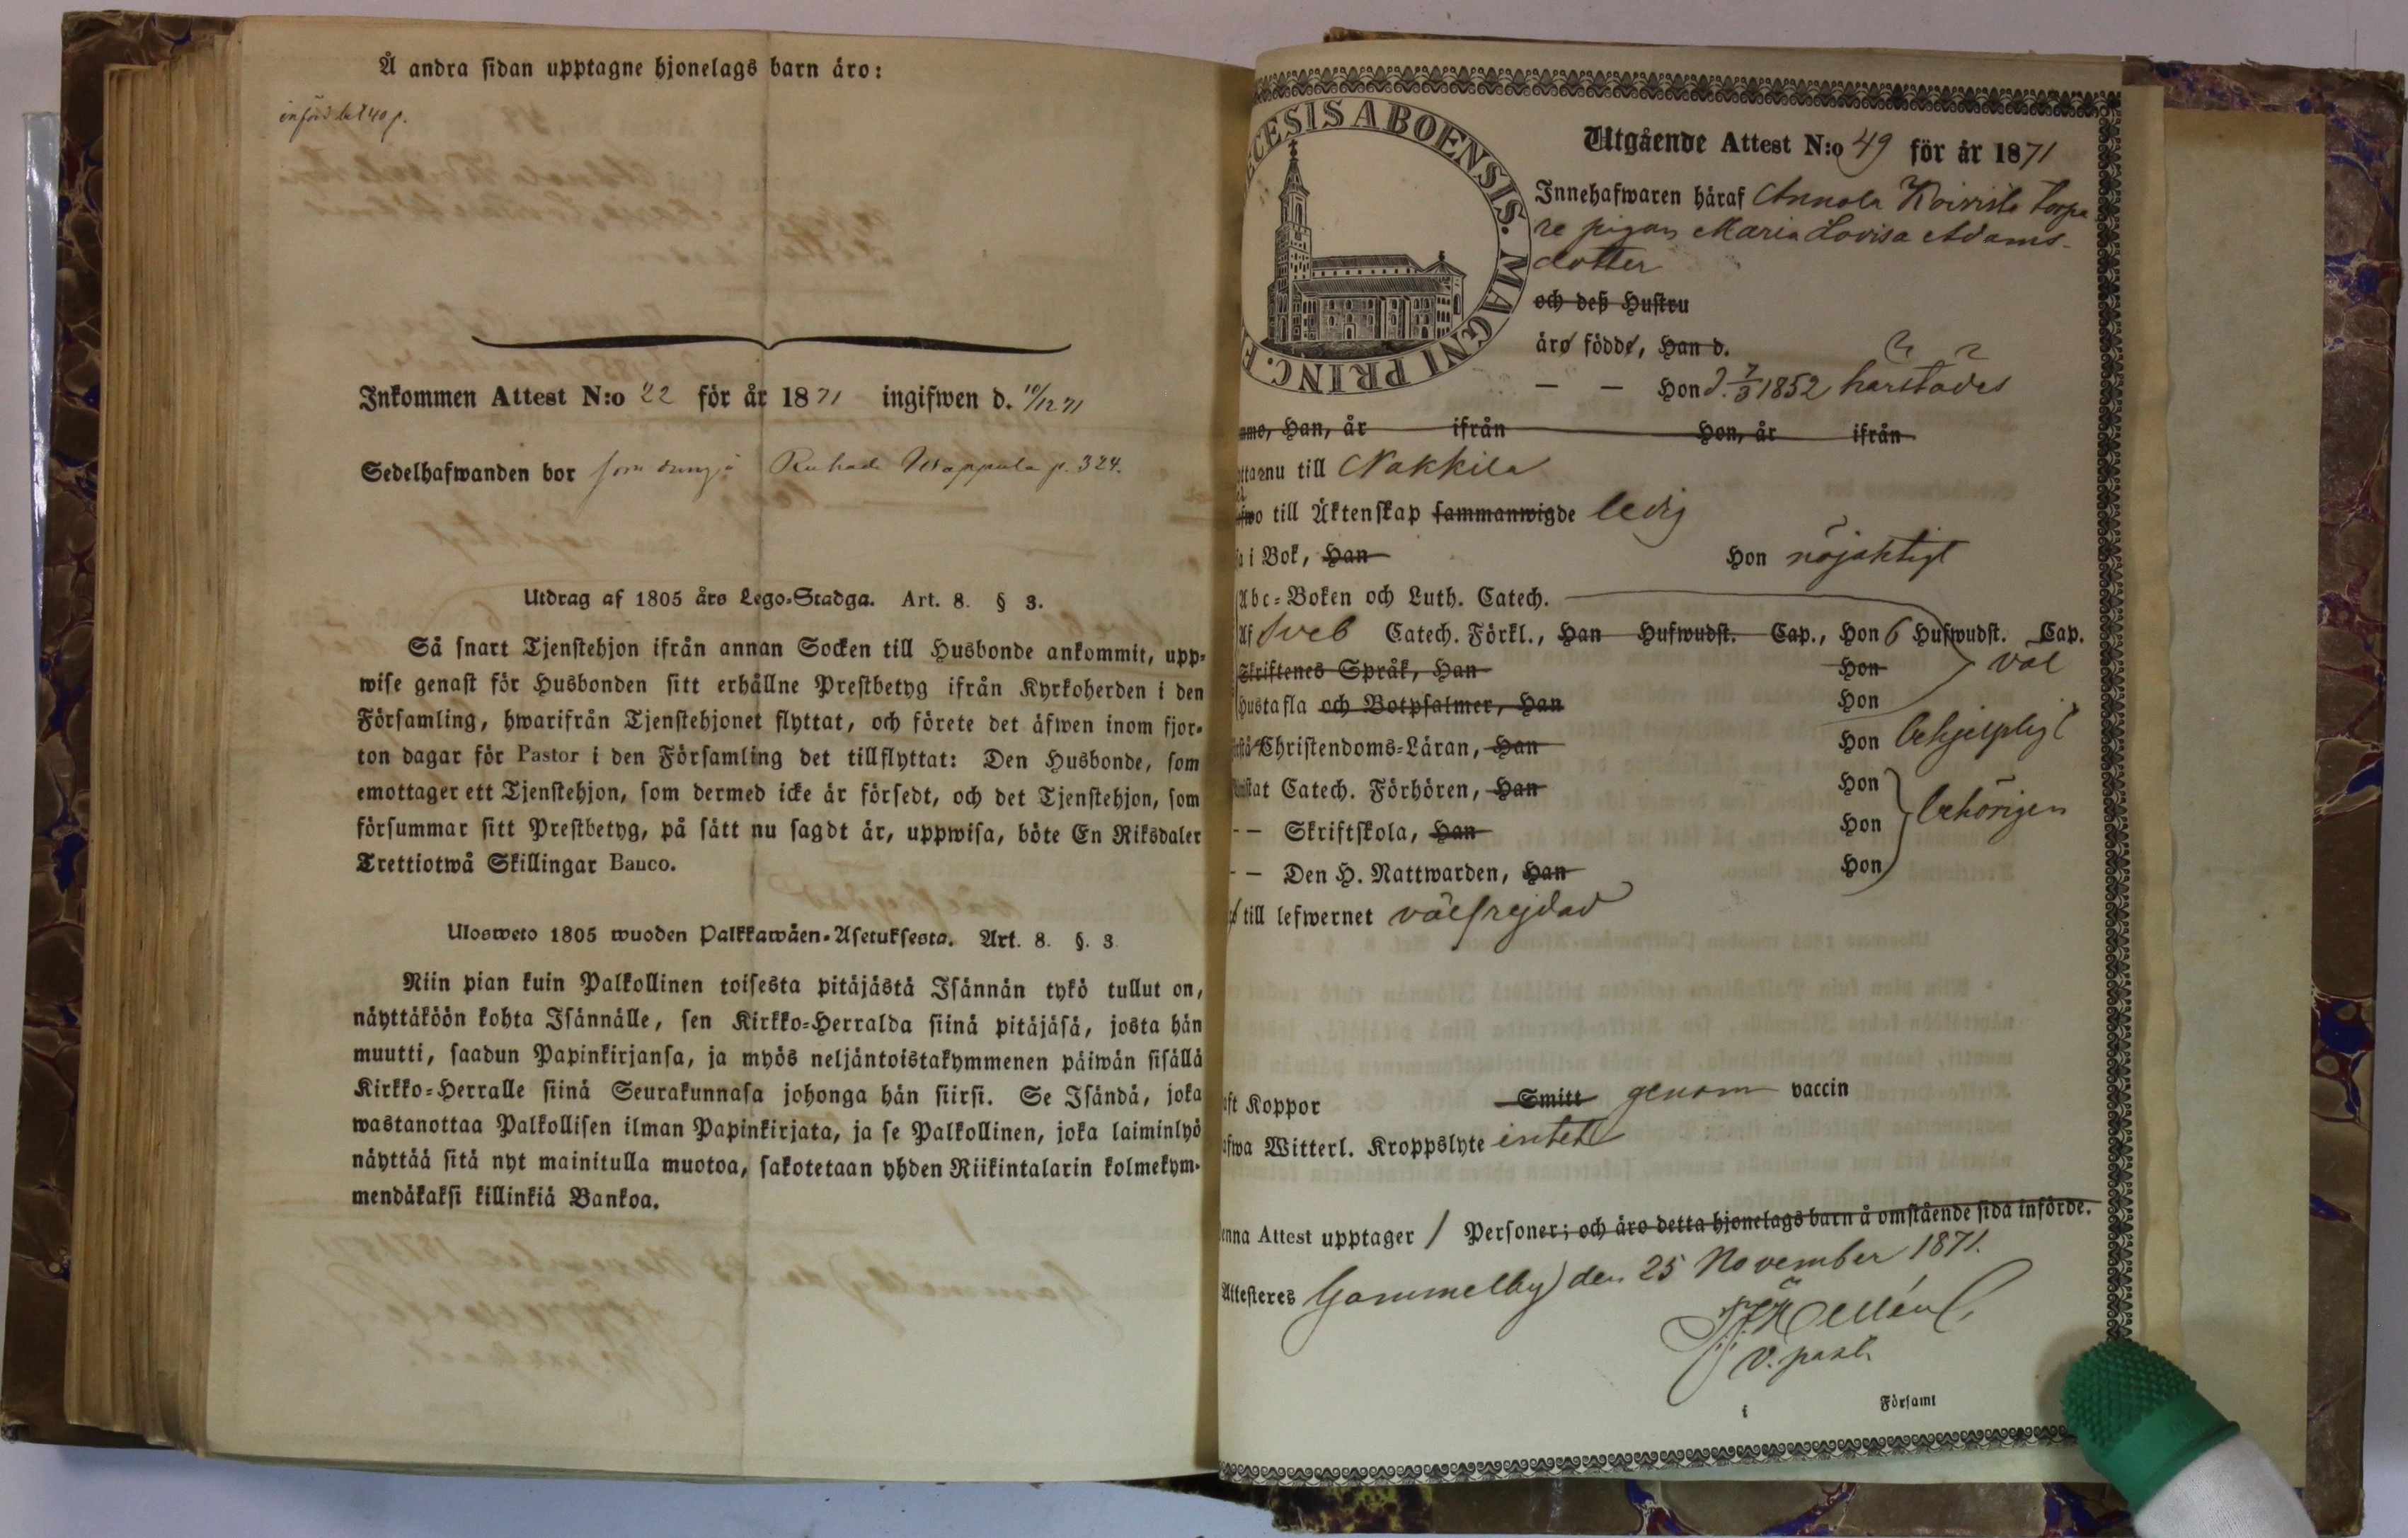 Å andra sidan upptagne hjonelags barn äro:
införd
Inkommen Attest N:o 22 för år 1871 ingifwen d. 10/12 71
Sedelhafwanden bor som dräng å p. 324.
Utdrag af 1805 års Lego-Stadga. Art. 8. § 3.
Så snart Tjenstehjon ifrån annan Socken till Husbonde ankommit, upp-
wise genast för Husbonden sitt erhållne Prestbetyg ifrån Kyrkoherden i den
Församling, hwarifrån Tjenstehjonet flyttat, och förete det äfwen inom fjor-
ton dagar för Pastor i den Församling det tillflyttat: Den Husbonde, som
emottager ett Tjenstehjon, som dermed icke är försedt, och det Tjenstehjon, som
försummar sitt Prestbetyg, på sätt nu sagdt är, uppwisa, böte En Riksdaler
Trettiotwå Skillingar Bauco.
Ulosweto 1805 wuoden Palkkawäen-Asetuksesta. Art. 8. §. 3.
Niin pian kuin Palkollinen toisesta pitäjästä Isännän tykö tullut on,
näyttäköön kohta Isännälle, sen Kirkko-Herralda siinä pitäjäsä, josta hän
muutti, saadun Papinkirjansa, ja myös neljäntoistakymmenen päiwän sisällä
Kirkko-Herralle siinä Seurakunnasa johonga hän siirsi. Se Isändä, joka
wastanottaa Palkollisen ilman Papinkirjata, ja se Palkollinen, joka laiminlyö
näyttää sitä nyt mainitulla muotoa, sakotetaan yhden Riikintalarin kolmekym-
mendäkaksi killinkiä Bankoa.
CESIS ABOENSIS. MAGNI PRINC. F
Utgående Attest N:o 49 för år 1871
Innehafwaren häraf Annola Koivisto torpa
re pigan Maria Lovisa Adams-
dotter
och deß Hustru
äro födde, Han d.
— — Hon d. 7/3 1852 härstädes
mmo, Han, år ifrån Hon, år ifrån
nu till Nakkila
wo till Äktenskap sammanwigde ledig
a i Bok, Han Hon nöjaktigt
Abc-Boken och Luth. Catech.
Af Sveb Catech. Förkl., Han Hufwudst. Cap., Hon 6 Hufwudst. Cap.
Skriftenes Språk, Han Hon väl
Hustafla och Botpsalmer, Han Hon
Christendoms-Läran, Han Hon behjelpligt
stat Catech. Förhören, Han Hon
— — Skriftskola, Han Hon behörigen
— — Den H. Nattwarden, Han Hon
till lefwernet välfrejdad
ft Koppor Smitt genom vaccin
fwa Witterl. Kroppslyte intet
enna Attest upptager 1 Personer; och äro detta hjonelags barn å omstående sida införde.
Attesteres Gammelby den 25 November 1871.
Hellén
V. past.
i Församl